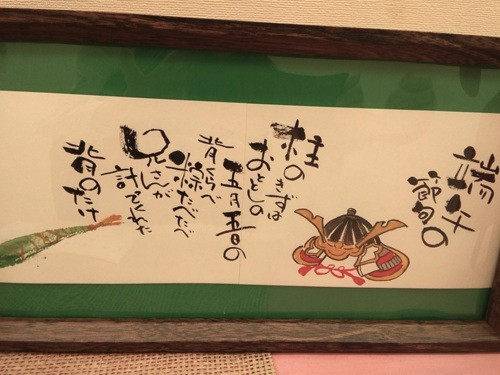 端午
節句の
柱のきずは
おととしの
五月五日の
背くらべ
粽たべたべ
兄さんが
計てくれた
背のたけ